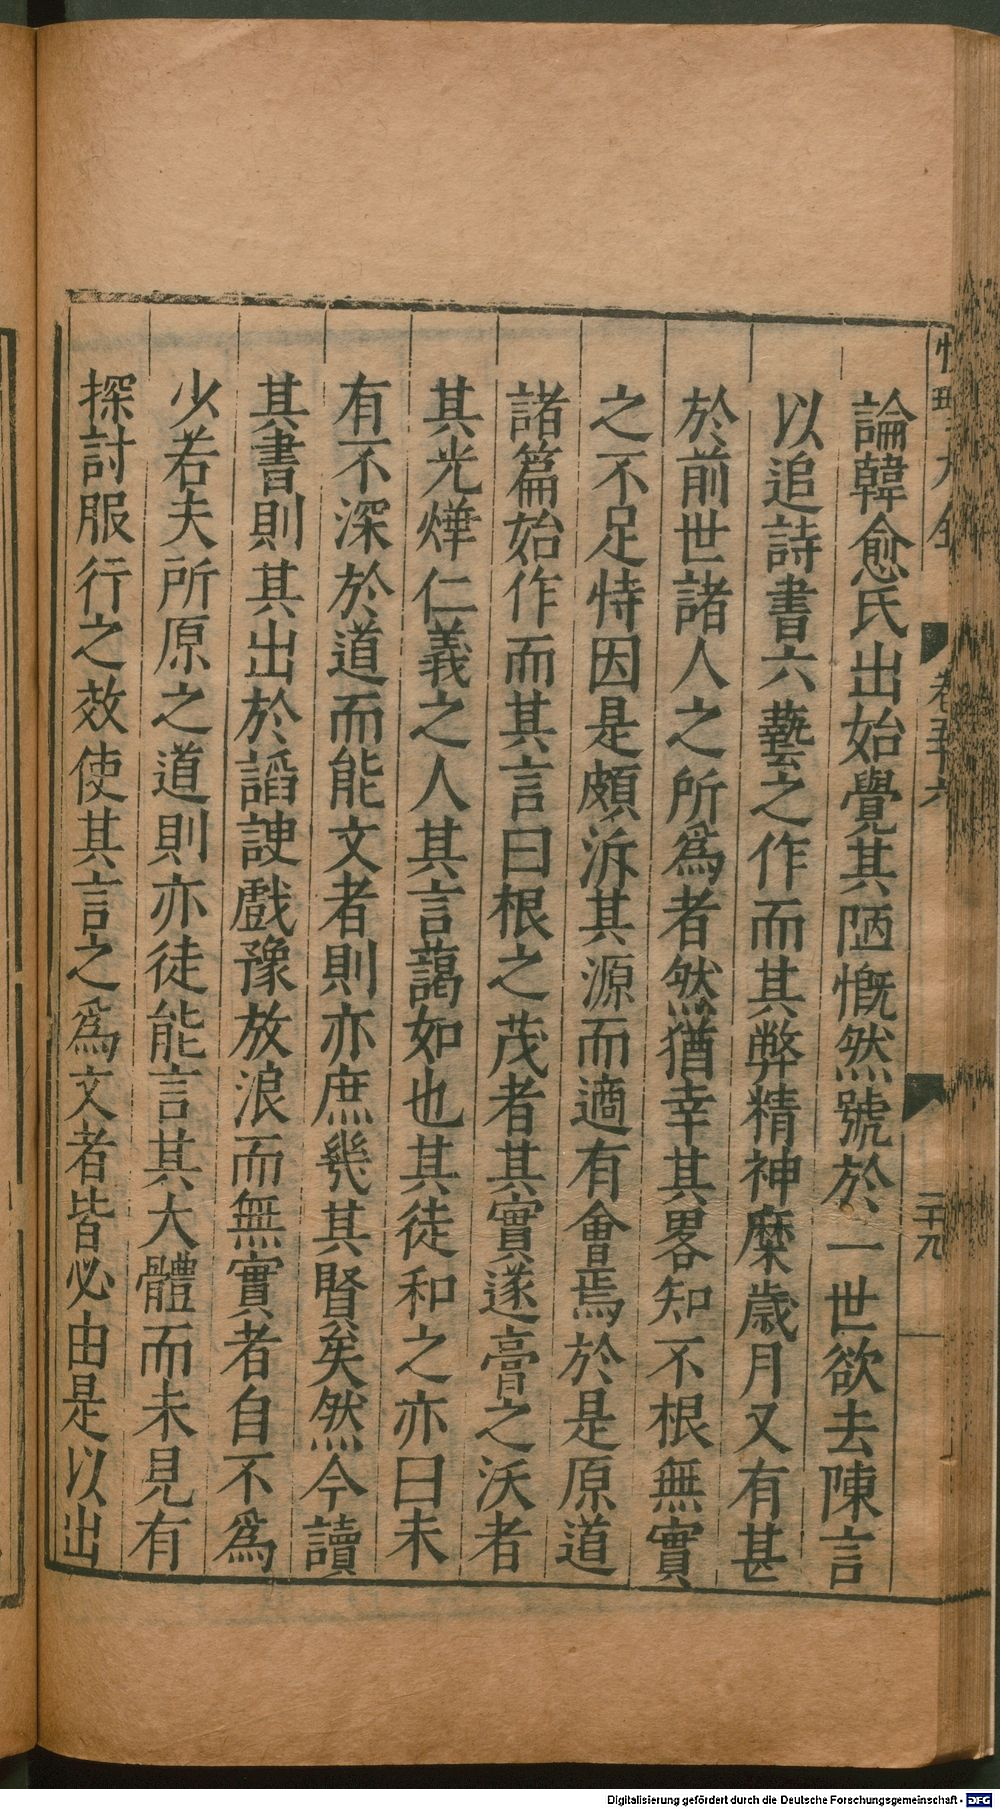 論韓愈氏出始覺其陋慨然號於一世欲去陳言
以追詩書六藝之作而其弊精神糜歲月又有甚
於前世諸人之所爲者然猶幸其畧知不根無實
之不足恃因是頗泝其源而適有會焉於是原道
諸篇始作而其言曰根之茂者其實遂膏之沃者
其光燁仁義之人其言藹如也其徒和之亦曰未
有不深於道而能文者則亦庶幾其賢矣然今讀
其書則其出於謟諛戲豫放浪而無實者自不爲
少若夫所原之道則亦徒能言其大體而未見有
探討服行之效使其言之爲文者皆必由是以出
卷五十六
二十九
Digitalisierung gefördert durch die Deutsche Forschungsgemeinschaft - DFG